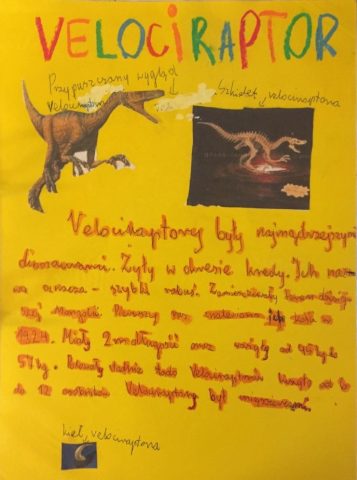 VELOCIRAPTOR
Przypuszczany wygląd
Szkielet velociraptora
velociraptora
Velociraptory były najmądrzejszymi
dinozaurami. Żyły w okresie kredy. Ich na-
zwa oznacza - szybki rabuś. Zamieszkiwały
Mongolii. Pierwszy raz znaleziono
1924. Miały 2 m długości oraz ważyły od 45 kg do
57 kg. stado velociraptorów liczyło od 6
do 12 osobników. Velociraptory były mięsożerne.
kieł velociraptora